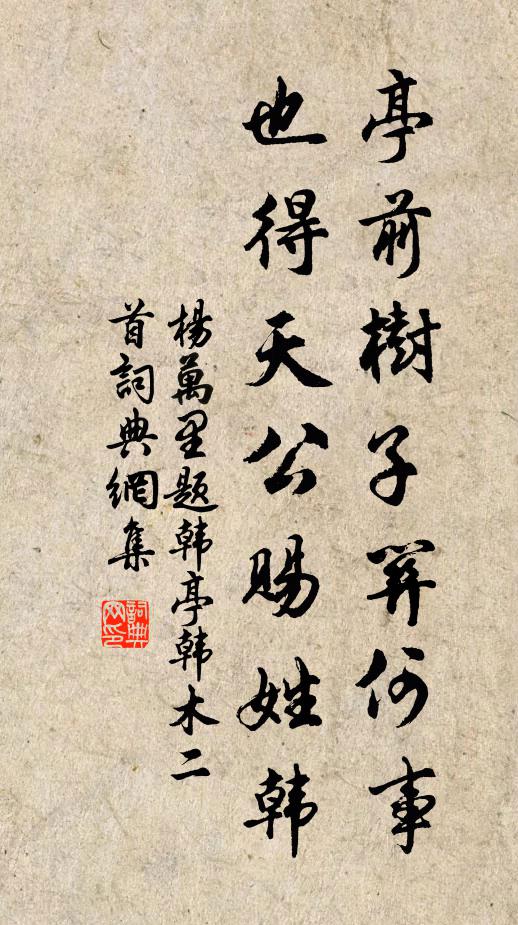 亭前樹子關何事
也得天公賜姓韓
楊萬里題韓亭韓木二
首詞典網集
詞典网印